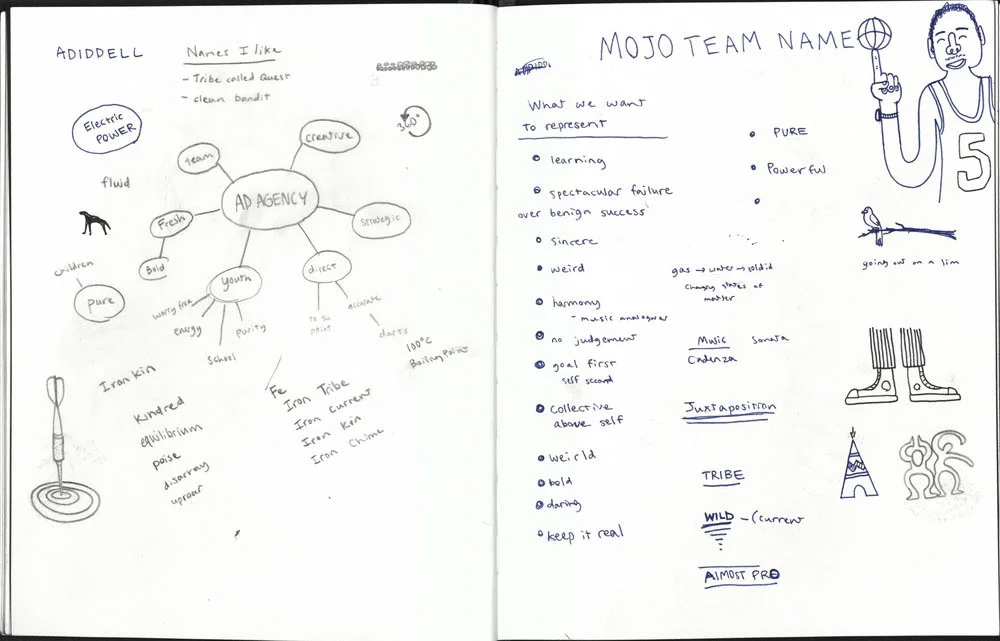 ADIDDELL
Names I like
- Tribe called Quest
- clean bandit
Electric
POWER
360°
creative
team
fluid
AD AGENCY
Fresh
Strategic
Bold
children
pure
youth
direct
worry free
energy
purity
School
to the
point
accurate
darts
100°C
Boiling Point
Iron Kin
Kindred
equilibrium
poise
disarray
uproar
Fe
Iron Tribe
Iron Current
Iron Kin
Iron Chime
MOJO TEAM NAME
What we want
to represent
learning
spectacular failure
over benign success
sincere
weird
harmony
- music analogues
no judgement
goal first
self second
collective
above self
weirld
bold
daring
keep it real
PURE
Powerful
gas → water → solid
Changing states of
matter
Music
Sonata
Cadenza
Juxtaposition
TRIBE
WILD - (current
AlMOST PRO
5
going out on a lim